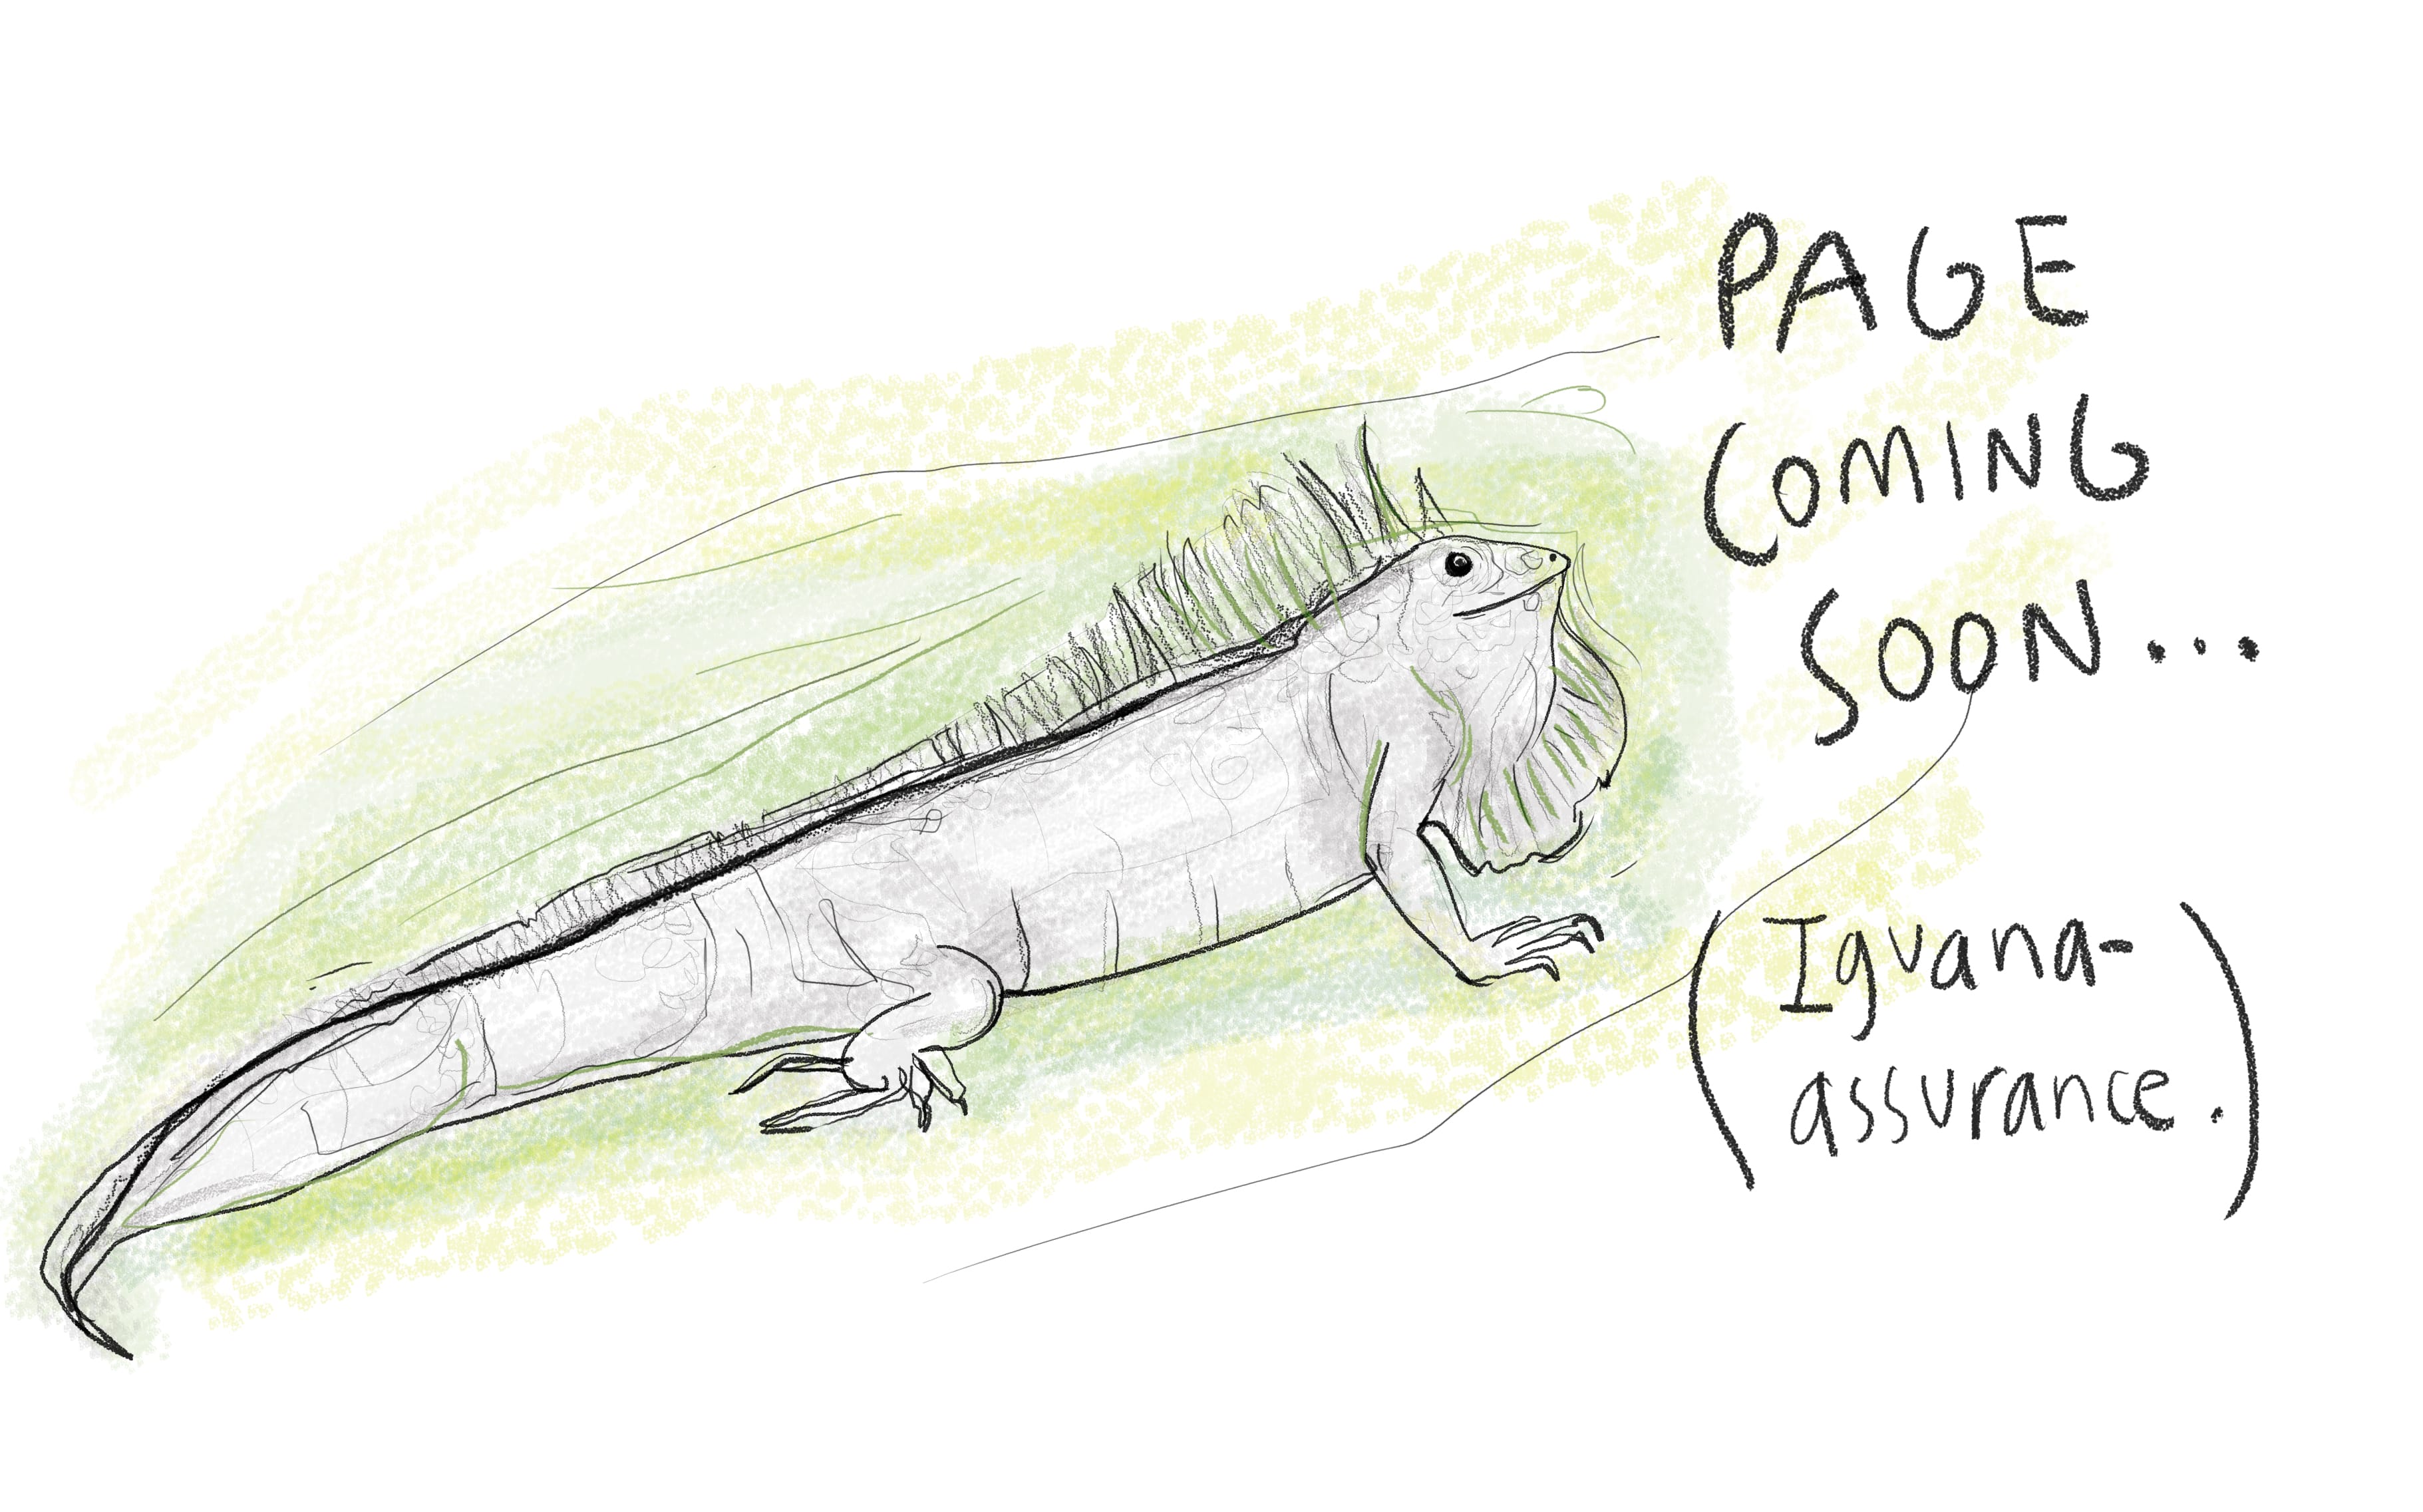 PAGE
COMING
SOON...
(Iguana-
assurance.)